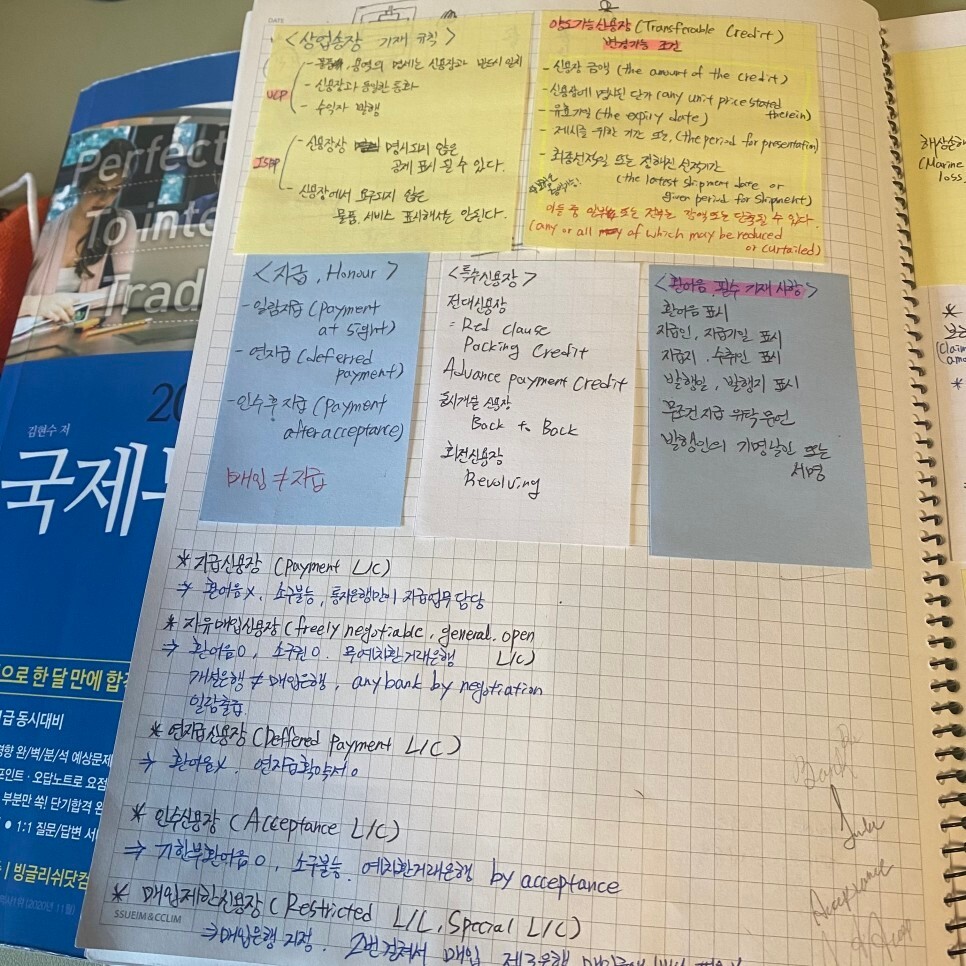 DATE
<상업송장 기재 규칙>
UCP
- 물품, 용역의 명세는 신용장과 반드시 일치
- 신용장과 동일한 통화
- 수익자 발행
ISBP
- 신용장상 명시되지 않은
공제 표시 될 수 있다.
- 신용장에서 요구되지 않은
물품, 서비스 표시해서는 안된다.
양도가능신용장 (Transferable Credit)
변경가능 조건
- 신용장 금액 (the amount of the credit)
- 신용장에 명시된 단가 (any unit price stated
therein)
- 유효기일 (the expiry date)
- 제시를 위한 기간 또는, (the period for presentation)
- 최종선적일 또는 정해진 선적기간
(the latest shipment date or
given period for shipment)
이들 중 일부 또는 전부는 감액 또는 단축될 수 있다.
(any or all of which may be reduced
or curtailed)
<지급, Honour>
- 일람지급 (payment
at sight)
- 연지급 (deferred
payment)
- 인수후지급 (payment
after acceptance)
매입 ≠ 지급
<특수신용장>
전대신용장
= Red clause
Packing Credit
Advance payment Credit
동시개설 신용장
Back to Back
회전신용장
Revolving
<환어음 필수 기재 사항>
환어음 표시
지급인, 지급기일 표시
지급지, 수취인 표시
발행일, 발행지 표시
무조건 지급 위탁 문언
발행인의 기명날인 또는
서명
* 지급신용장 (Payment L/C)
⇒ 환어음X, 소구불능, 통지은행만이 지급업무 담당
* 자유매입신용장 (freely negotiable, general, open
L/C)
⇒ 환어음O, 소구권O. 무예치환거래은행
개설은행 ≠ 매입은행, any bank by negotiation
일람출급
* 연지급신용장 (Deffered Payment L/C)
⇒ 환어음X. 연지급확약서O
* 인수신용장 (Acceptance L/C)
⇒ 기한부환어음O, 소구불능. 예치환거래은행 by acceptance
* 매입제한신용장 (Restricted L/C, Special L/C)
⇒ 매입은행 지정. 2번 걸쳐서 매입
SSUEIM&CCLIM
Bank
Acceptance
해상손해
(Marine
loss.
*
(Claim
amo
*
Perfect
To inte
Trad
20
김현수 저
국제무
으로 한 달 만에 합격
급 동시대비
경향 완/벽/분/석 예상문제
포인트 · 오답노트로 요점
부분만 쏙! 단기합격 완
● 1:1 질문/답변 서
| 빙글리쉬닷컴
(2020년 11월)